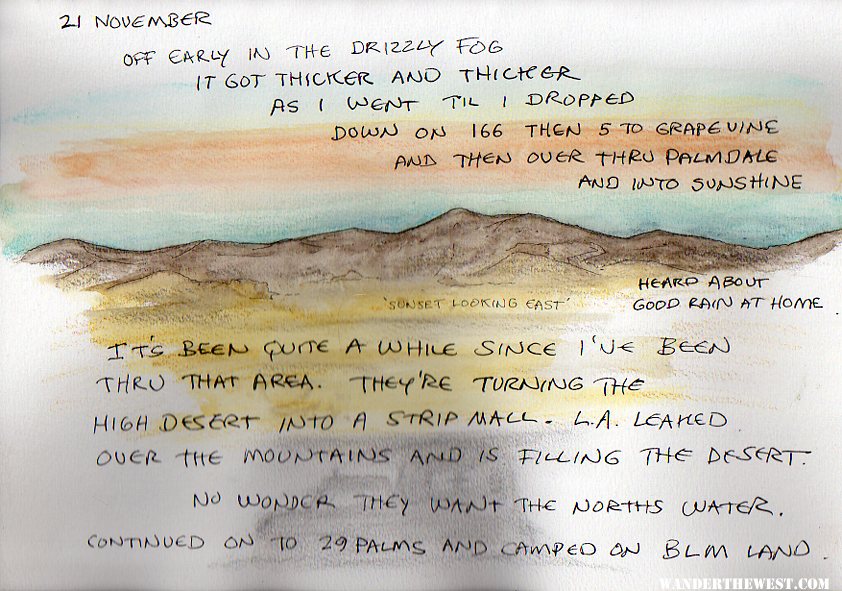 21 NOVEMBER
OFF EARLY IN THE DRIZZLY FOG
IT GOT THICKER AND THICKER
AS I WENT TIL I DROPPED
DOWN ON 166 THEN 5 TO GRAPEVINE
AND THEN OVER THRU PALMDALE
AND INTO SUNSHINE
HEARD ABOUT
GOOD RAIN AT HOME.
'SUNSET LOOKING EAST'
IT'S BEEN QUITE A WHILE SINCE I'VE BEEN
THRU THAT AREA. THEY'RE TURNING THE
HIGH DESERT INTO A STRIP MALL. L.A. LEAKED
OVER THE MOUNTAINS AND IS FILLING THE DESERT.
NO WONDER THEY WANT THE NORTHS WATER.
CONTINUED ON TO 29 PALMS AND CAMPED ON BLM LAND.
WANDERTHEWEST.COM